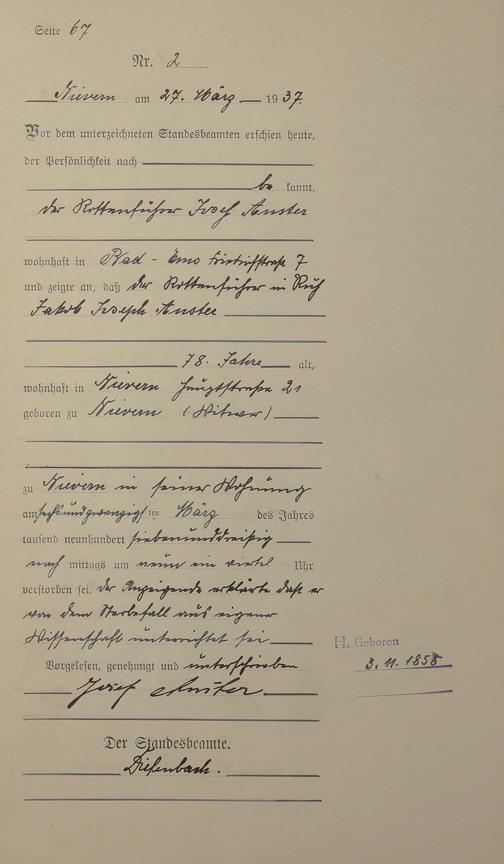 Seite 67
Nr. 2
Nievern am 27. März 1937.
Vor dem unterzeichneten Standesbeamten erschien heute,
der Persönlichkeit nach
be kannt,
der Rottenführer Josef Anster
wohnhaft in Bad-Ems Friedrichstraße 7
und zeigte an, daß der Rottenführer in Ruh
Jakob Joseph Anster
78. Jahre alt,
wohnhaft in Nievern Hauptstraße 21
geboren zu Nievern (Witwer)
zu Nievern in seiner Wohnung
am sechsundzwanzigsten März des Jahres
tausend neunhundert siebenunddreißig
nach mittags um neun ein viertel Uhr
verstorben sei. der Anzeigende erklärte daß er
von dem Sterbefall aus eigener
Wissenschaft unterrichtet sei
Vorgelesen, genehmigt und unterschrieben
Josef Anster.
H. Geboren
3. 11. 1858
Der Standesbeamte.
Diefenbach.